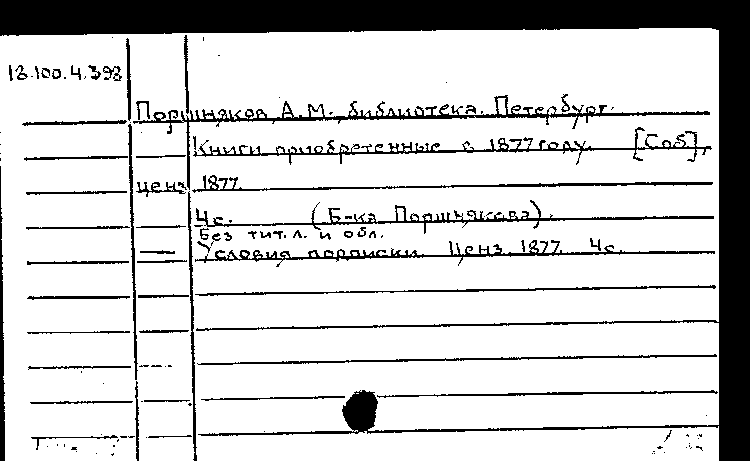 18.100.4.398
Поршняков, А.М., библиотека. Петербург.
Книги приобретенные в 1877 году. [Соб],
ценз. 1877.
4с. (Б-ка Поршнякова).
Без тит. л. и обл.
— Условия подписки. Ценз. 1877. 4с.